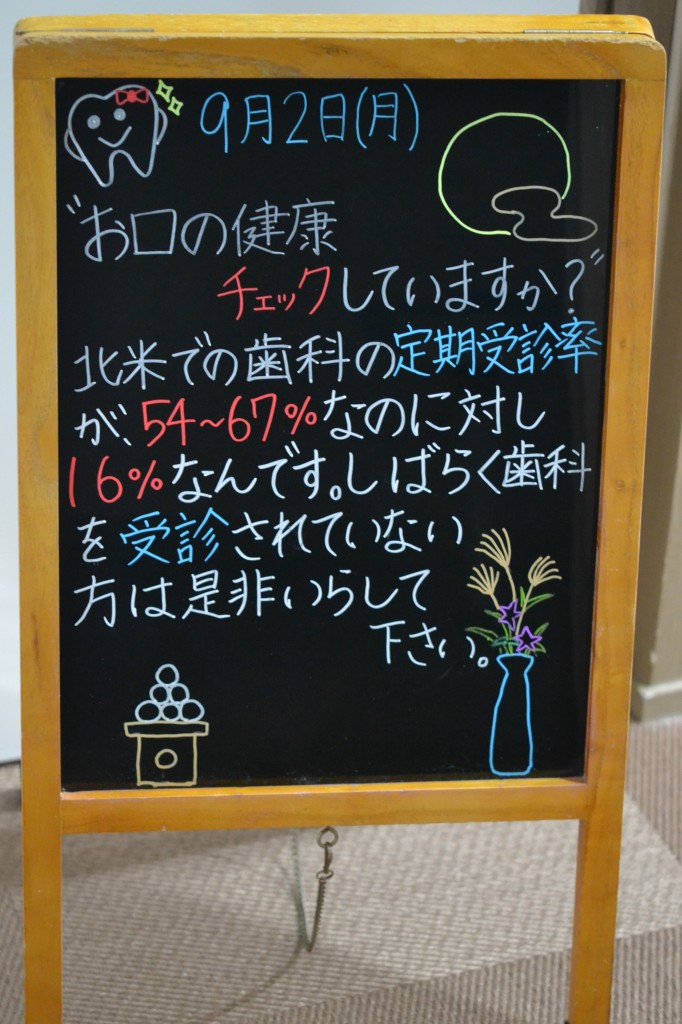 9月2日(月)
"お口の健康
チェックしていますか?"
北米での歯科の定期受診率
が、54~67%なのに対し
16%なんです。しばらく歯科
を受診されていない
方は是非いらして
下さい。